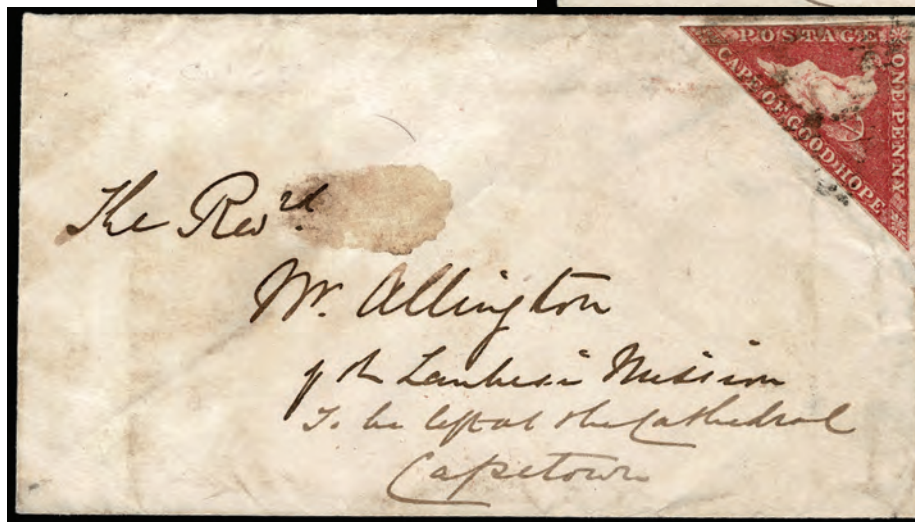 POSTAGE
ONE PENNY
CAPE OF GOOD HOPE
The Revd.
Mr. Allington
of the Zambesi Mission
To be left at the Cathedral
Capetown